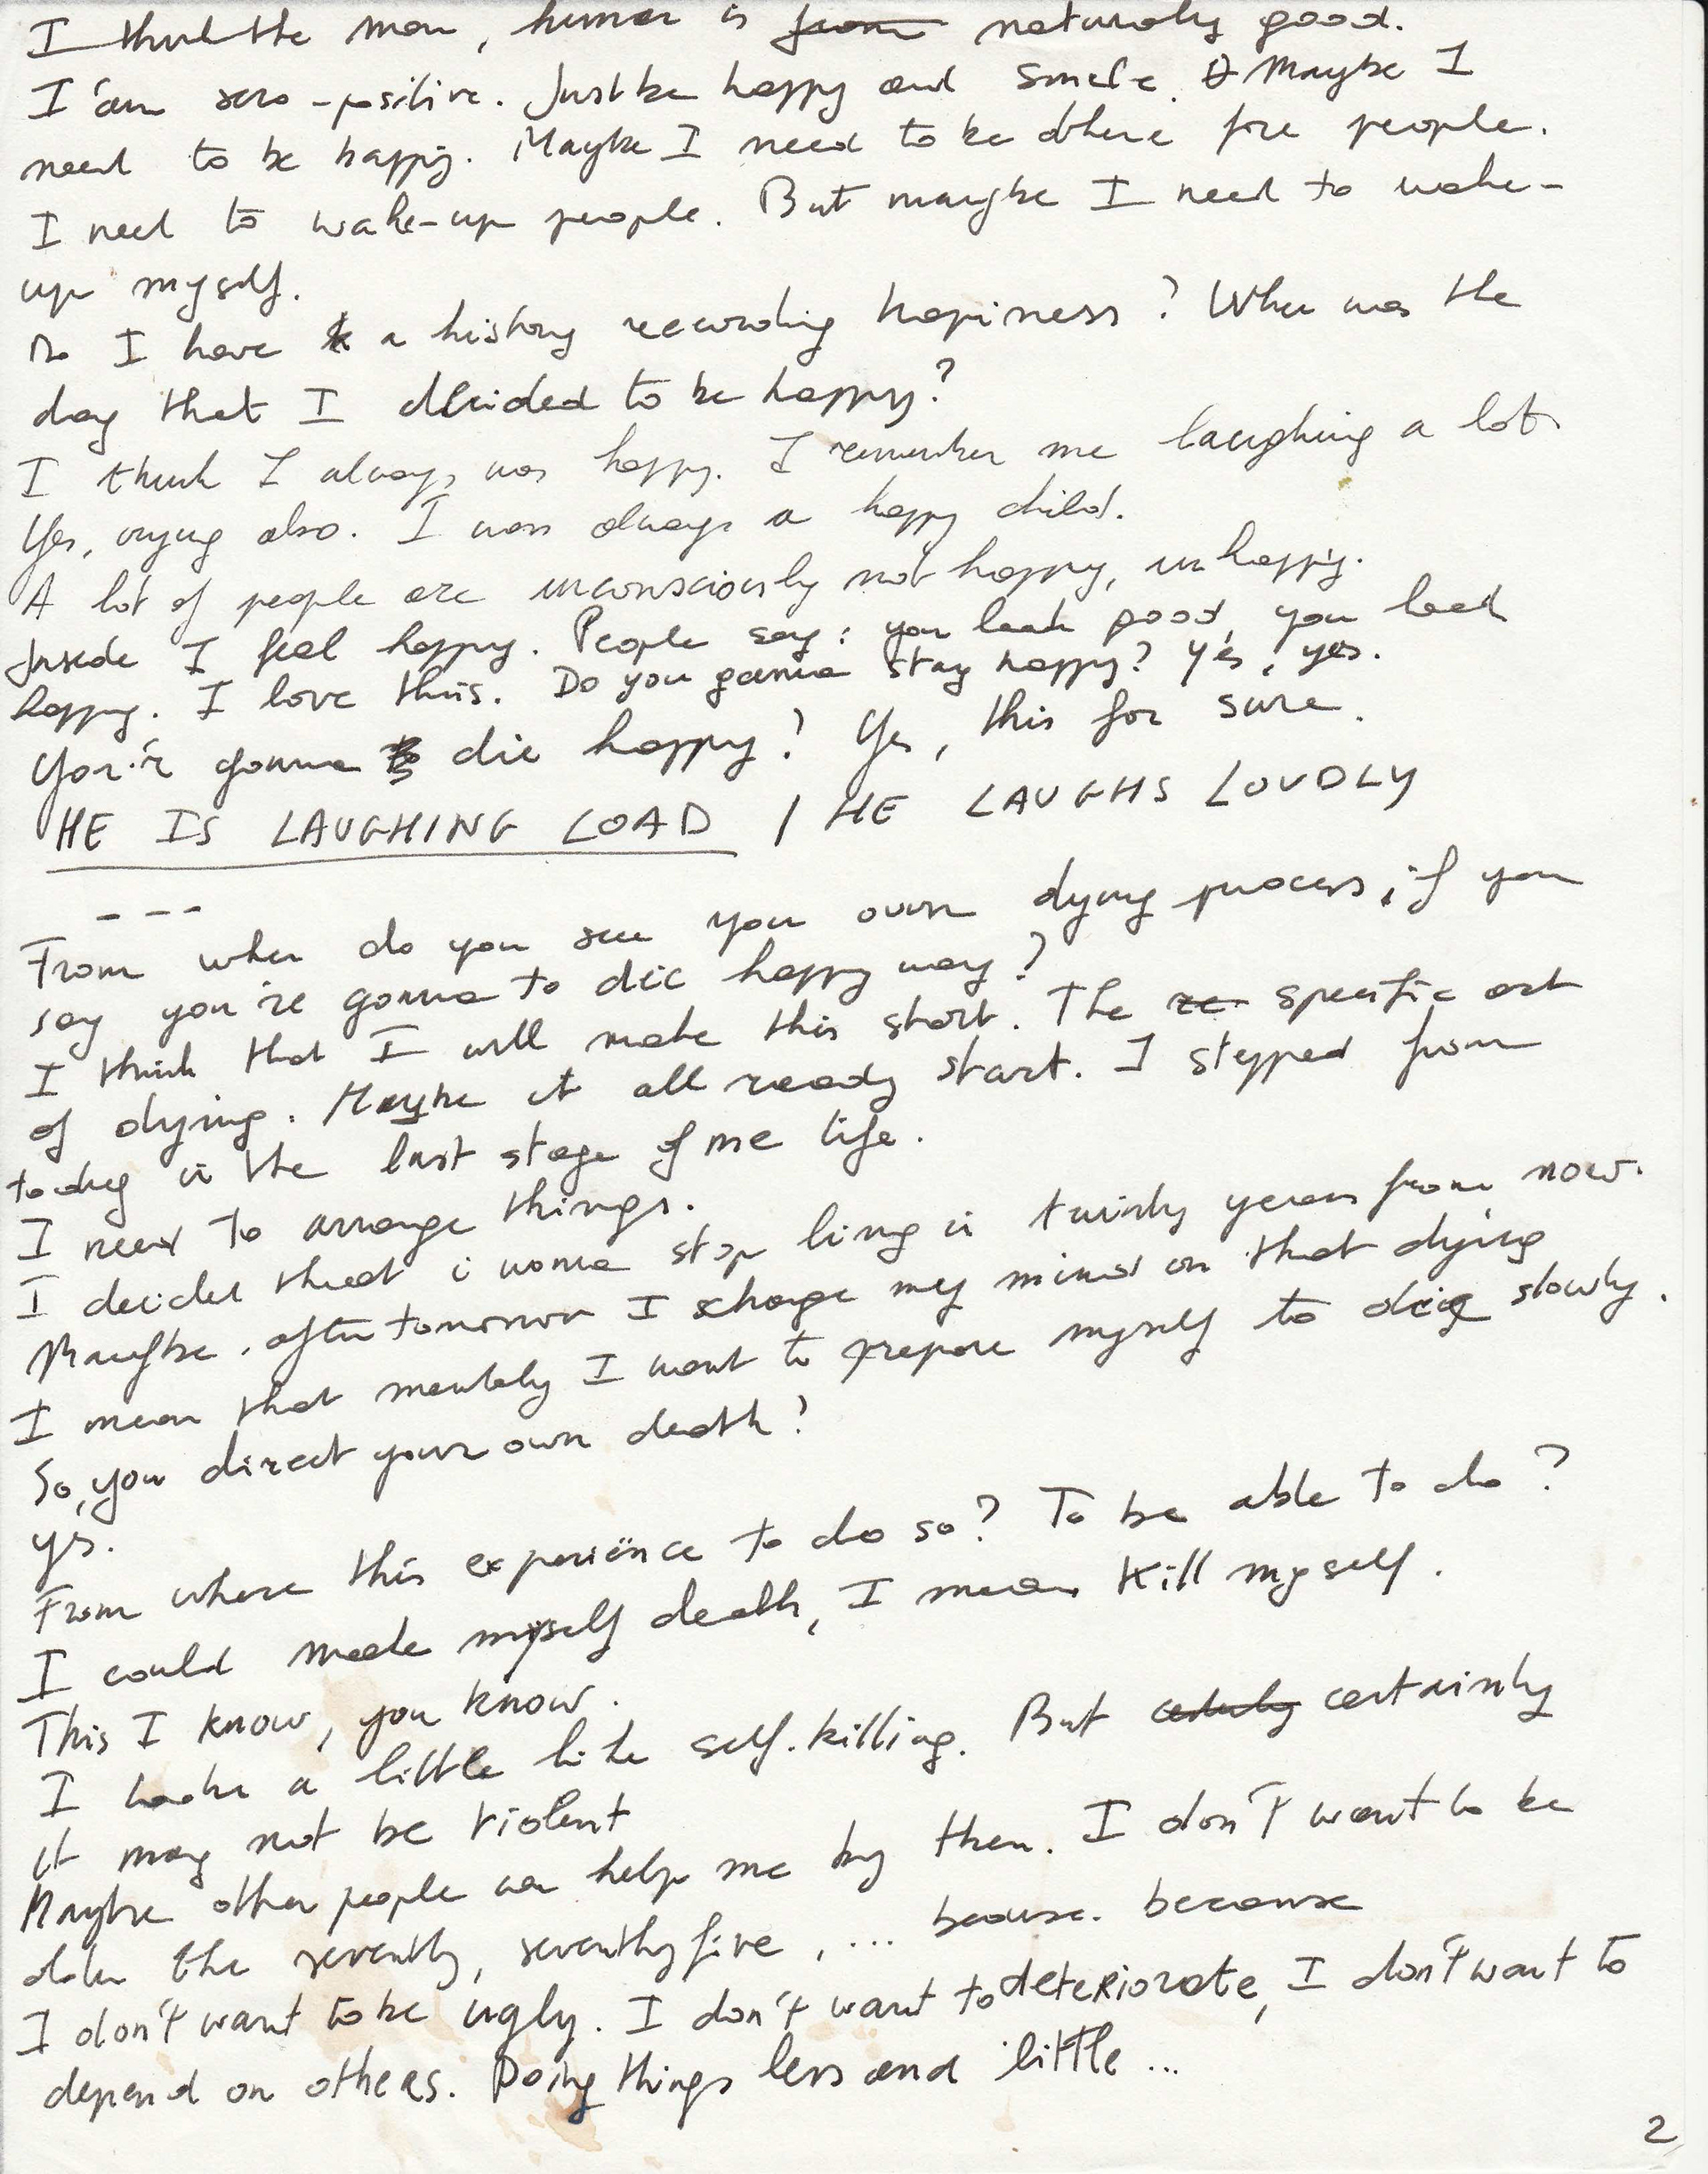 I think the man, human is from naturaly good.
I'am sero-positive. Just be happy and smile. Maybe I
need to be happy. Maybe I need to be there fore people.
I need to wake-up people. But maybe I need to wake-
up myself.
Do I have a history recording hapiness? When was the
day that I decided to be happy?
I think I always was happy. I remember me laughing a lot
Yes, crying also. I was always a happy child.
A lot of people are unconsciously not happy, unhappy.
Inside I feel happy. People say: you look good, you look
happy. I love this. Do you ganna stay happy? Yes, yes.
You'r gonna die happy? Yes, this for sure.
HE IS LAUGHING LOAD / HE LAUGHS LOUDLY
---
From when do you see your own dying process, if you
say you're gonna to die happy way?
I think that I will make this short. The specific act
of dying. Maybe it all ready start. I stepped from
today in the last stage of me life.
I need to arrange things.
I decided that i wanna stop living in twinty years from now.
Maybe, after tomorrow I change my mind on that dying
I mean that mentaly I want to prepare myself to die slowly.
So, you direct your own death?
Yes.
From where this experiënce to do so? To be able to do?
I could made myself death, I mean Kill myself.
This I know, you know.
I looke a little like self-killing. But certainly
it may not be violent
Maybe other people can help me by then. I don't want to be
older the seventy, seventyfive, ... because. because
I don't want to be ugly. I don't want to deteriorate, I don't want to
depend on others. Doing things less and little...
2